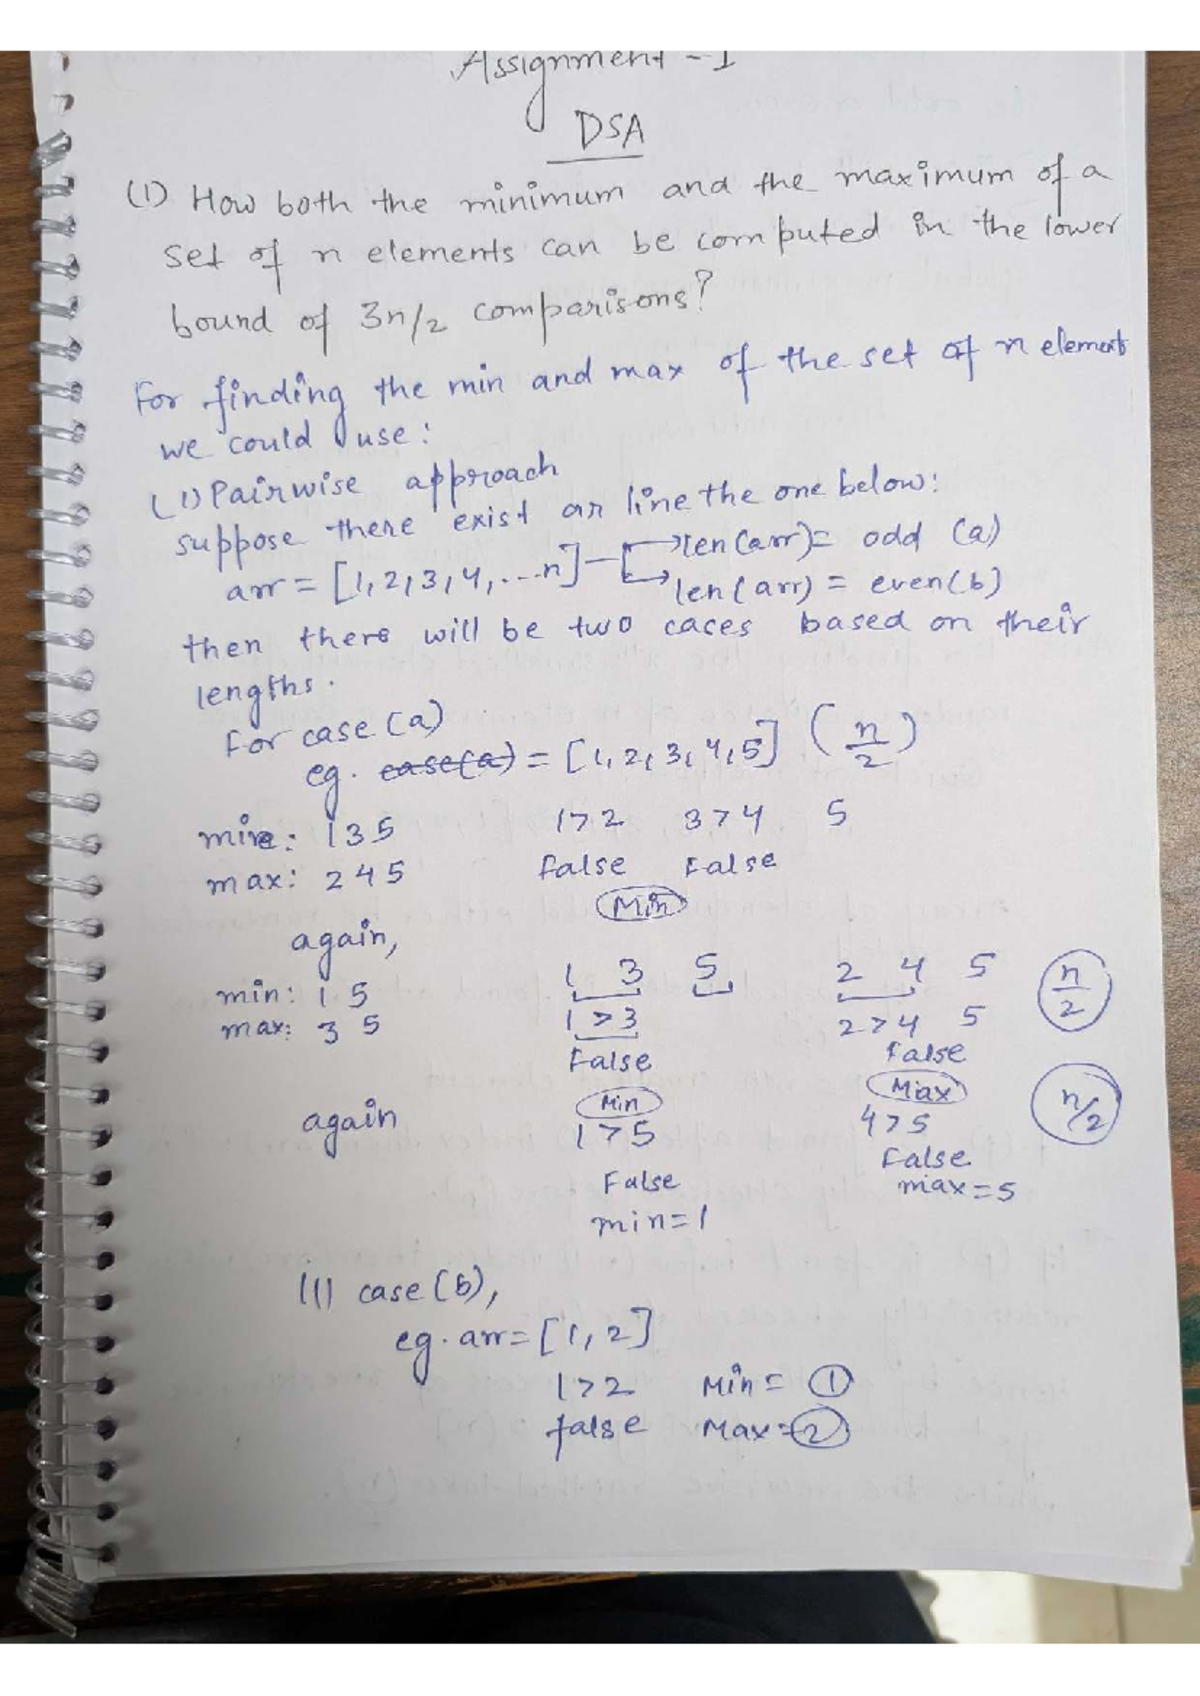 Assignment - I
DSA
(1) How both the minimum and the maximum of a
set of n elements can be computed in the lower
bound of 3n/2 comparisons?
For finding the min and max of the set of n elements
we could use:
(1) Pairwise approach
suppose there exist an line the one below:
arr = [1, 2, 3, 4, ...n] → len(arr) = odd (a)
→ len(arr) = even(b)
then there will be two caces based on their
lengths.
For case (a)
eg. case(a) = [1, 2, 3, 4, 5] (n/2)
min: 1 3 5 1>2 3>4 5
max: 2 4 5 False False
Min
again,
min: 1 5 1 3 5 2 4 5 n/2
max: 3 5 1>3 2>4 5
False False
Min Max n/2
again 1>5 4>5
False False
min=1 max=5
||| case (b),
eg. arr = [1, 2]
1>2 Min = 1
false Max = 2